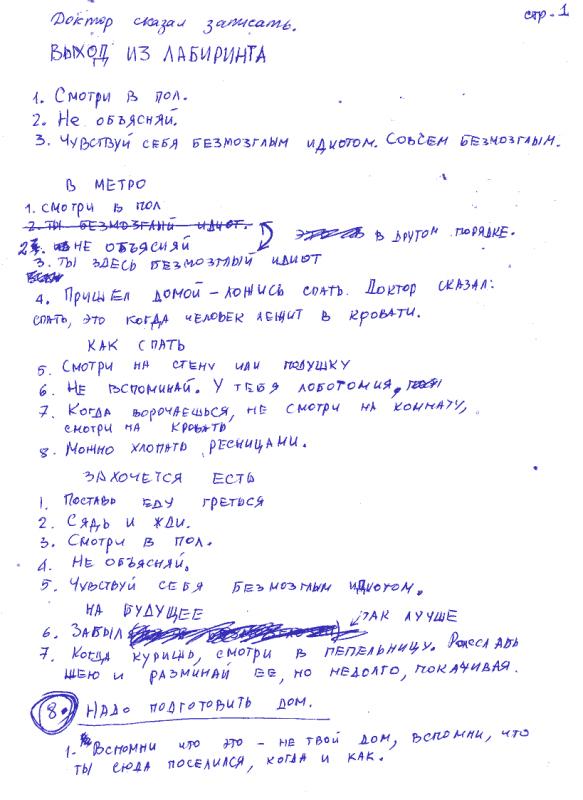 Доктор сказал записать.
стр. 1
ВЫХОД ИЗ ЛАБИРИНТА
1. Смотри в пол.
2. Не объясняй.
3. Чувствуй себя безмозглым идиотом. Совсем безмозглым.
В МЕТРО
1. Смотри в пол
2. Ты безмозглый идиот.
в другом порядке.
2. Не объясняй
3. Ты здесь безмозглый идиот
4. Пришел домой – ложись спать. Доктор сказал:
спать, это когда человек лежит в кровати.
КАК СПАТЬ
5. Смотри на стену или подушку
6. Не вспоминай. У тебя лоботомия,
7. Когда ворочаешься, не смотри на комнату,
смотри на кровать
8. Можно хлопать ресницами.
ЗАХОЧЕТСЯ ЕСТЬ
1. Поставь еду греться
2. Сядь и жди.
3. Смотри в пол.
4. Не объясняй.
5. Чувствуй себя безмозглым идиотом.
НА БУДУЩЕЕ
так лучше
6. Забыл
7. Когда куришь, смотри в пепельницу. Расслабь
шею и разминай ее, но недолго, покачивая.
8. Надо подготовить дом.
1. Вспомни что это – не твой дом, вспомни, что
ты сюда поселился, когда и как.